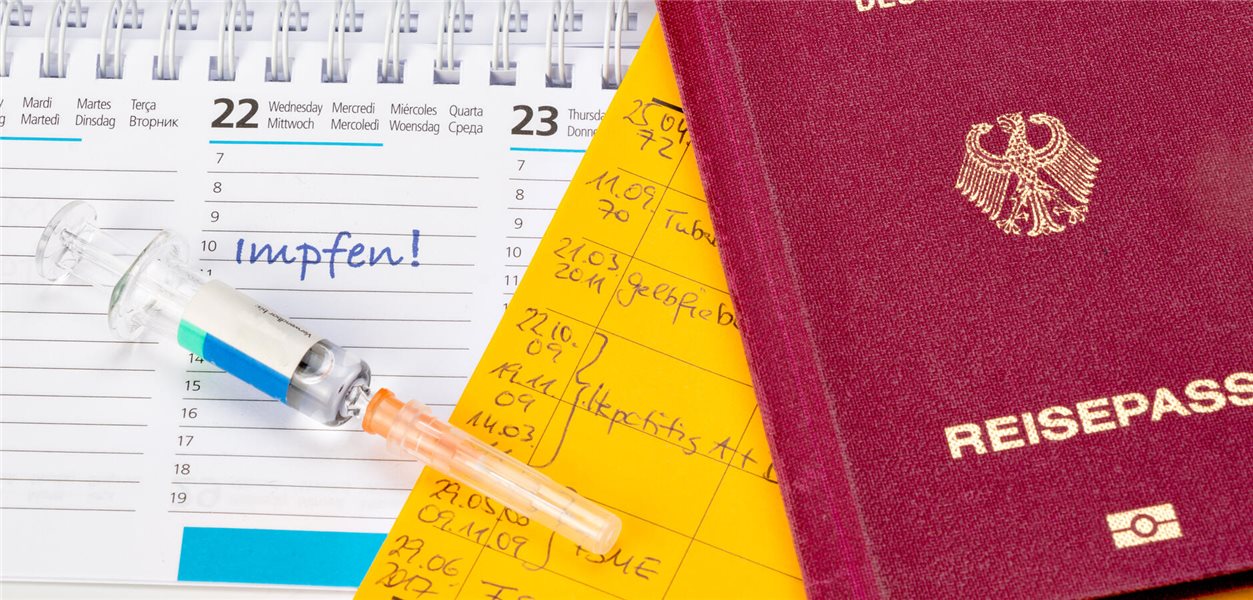 Mardi Martes Terça
Martedì Dinsdag Вторник
22 Wednesday Mercredi Miércoles Quarta
Mittwoch Mercoledì Woensdag Среда
23
7
8
9
10 Impfen!
14
15
16
17
18
19
7
8
9
10
11
Verwendbar bis:
25.04.
72
11.09.
70
21.03. Gelbfieb
2011
22.10.
09
19.11.
09
Hepatitis A +
14.03.
29.05.
09.11.09
29.06.
2017
REISEPASS